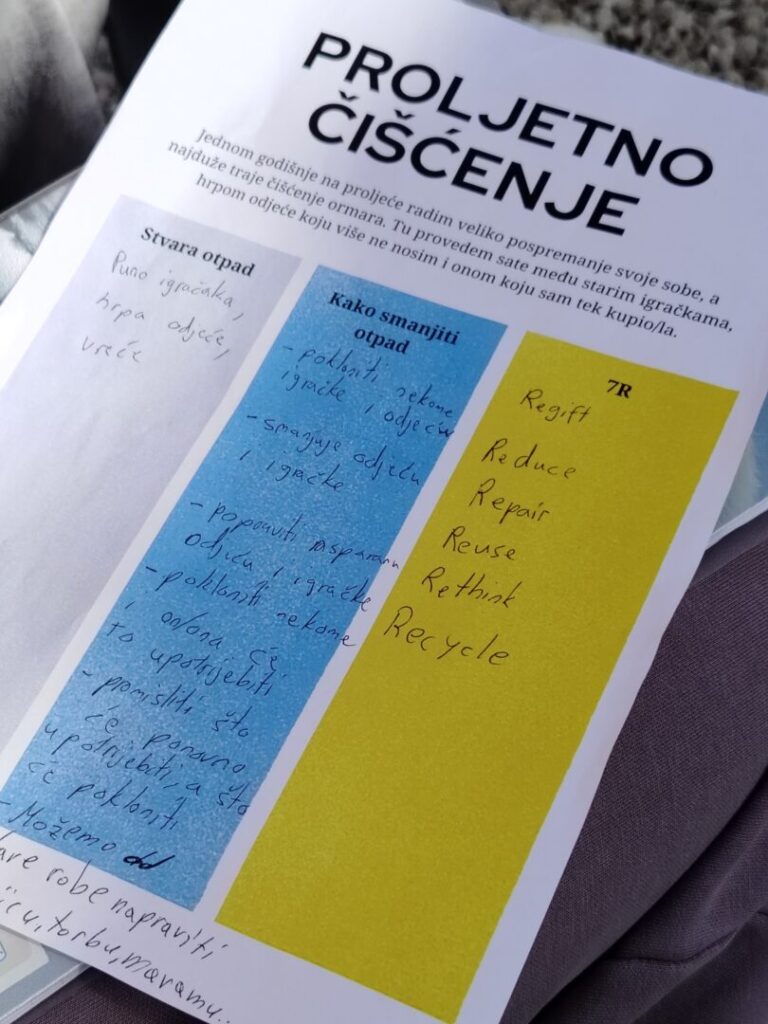 PROLJETNO
ČIŠĆENJE
Jednom godišnje na proljeće radim veliko pospremanje svoje sobe, a
najduže traje čišćenje ormara. Tu provedem sate među starim igračkama,
hrpom odjeće koju više ne nosim i onom koju sam tek kupio/la.
Stvara otpad
Puno igračaka,
hrpa odjeće,
vreće
Kako smanjiti
otpad
- pokloniti nekome
igračke i odjeću
- smanjuje odjeću
i igračke
- popraviti
odjeću i igračke
- pokloniti nekome
i on/ona će
to upotrijebiti
- promisliti što
će ponovno
upotrijebiti, a što
će pokloniti
- Možemo od
robe napraviti
torbu, maramu..
7R
Regift
Reduce
Repair
Reuse
Rethink
Recycle